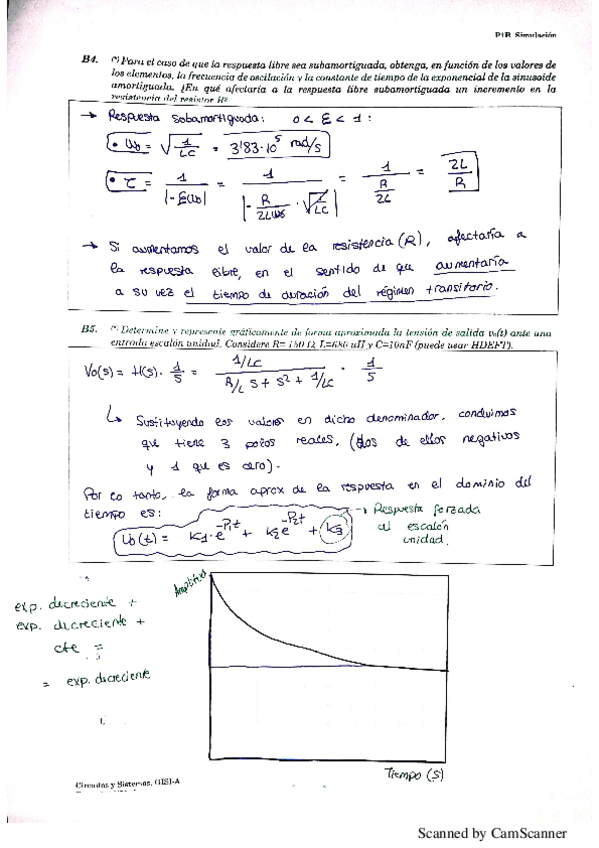 P1R Simulación
B4. (*) Para el caso de que la respuesta libre sea subamortiguada, obtenga, en función de los valores de
los elementos, la frecuencia de oscilación y la constante de tiempo de la exponencial de la sinusoide
amortiguada. ¿En qué afectaría a la respuesta libre subamortiguada un incremento en la
resistencia del resistor R?
→ Respuesta Subamortiguada: 0 < ξ < 1 :
• ω₀ = √(1/LC) = 3'83·10⁵ rad/s
• τ = 1/|-ξω₀| = 1/|-R/2Lω₀ · √(1/LC)| = 1/(R/2L) = 2L/R
→ Si aumentamos el valor de la resistencia (R), afectaría a
la respuesta libre, en el sentido de que aumentaría
a su vez el tiempo de duración del régimen transitorio.
B5. (*) Determine y represente gráficamente de forma aproximada la tensión de salida v₀(t) ante una
entrada escalón unidad. Considere R= 150 Ω, L=680 uH y C=10nF (puede usar HDEFT).
Vo(s) = H(s) · 1/s = (1/LC)/(R/L s + s² + 1/LC) · 1/s
↳ Sustituyendo los valores en dicho denominador, concluimos
que tiene 3 polos reales, (dos de ellos negativos
y 1 que es cero).
Por lo tanto, la forma aprox de la respuesta en el dominio del
tiempo es:
Vo(t) = k₁·e^-P₁t + k₂e^-P₂t + k₃ → Respuesta forzada
al escalón
unidad.
Amplitud
exp. decreciente +
exp. decreciente +
cte =
= exp. decreciente
Tiempo (s)
Circuitos y Sistemas, GISI-A
Scanned by CamScanner